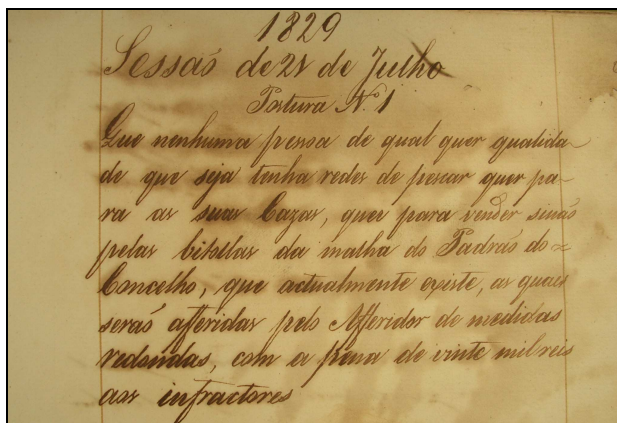 1829
Sessaõ de 21 de Julho
Postura N. 1
Que nenhuma pessoa de qual quer qualida
de que seja tenha redes de pescar quer pa-
ra as suas Cazas, quer para vender sinaõ
pelas bitollas da malha do Padraõ do
Concelho, que actualmente existe, as quaes
seraõ afferidas pelo Afferidor de medidas
redondas, com a pena de vinte mil reis
aos infractores